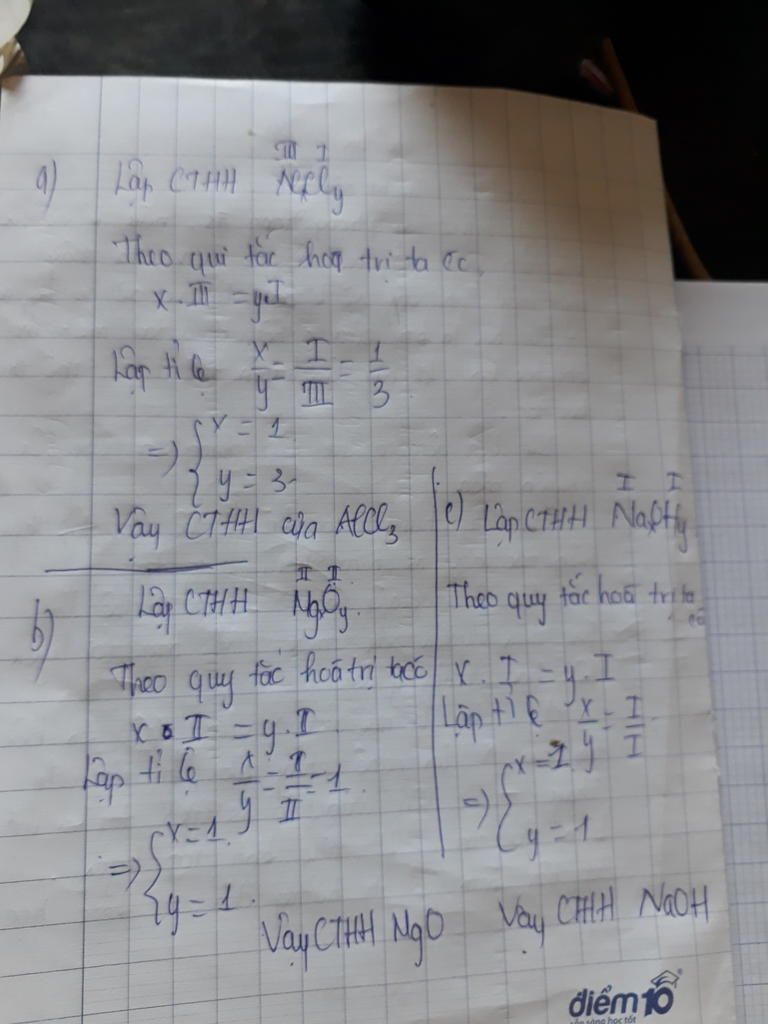 a) Lập CTHH
III I
Theo qui tắc hoá trị ta có
x . III = y.I
Lập tỉ lệ x/y = I/III = 1/3
=> { x = 1
y = 3
Vậy CTHH của AlCl3
b) Lập CTHH NgxOy
II II
Theo quy tắc hoá trị ta có
x . II = y . II
Lập tỉ lệ x/y = II/II = 1
=> { x = 1
y = 1
Vậy CTHH NgO
c) Lập CTHH NaxOHy
I I
Theo quy tắc hoá trị ta có
x . I = y . I
Lập tỉ lệ x/y = I/I
=> { x = 1
y = 1
Vậy CTHH NaOH
điểm10